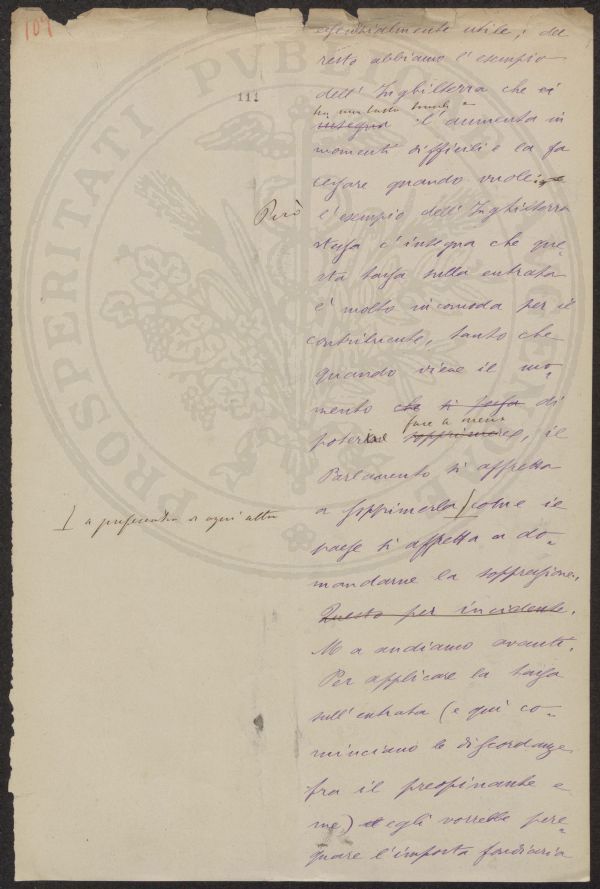 107
111
PROSPERITATI PVBLICAE
essenzialmente utile; del
resto abbiamo l'esempio
dell'Inghilterra che ci
ha una tassa simile e
insegna l'aumenta in
momenti difficili e la fa
cessare quando vuole
Però
l'esempio dell'Inghilterra
stessa c'insegna che que-
sta tassa sulla entrata
è molto incomoda per il
contribuente, tanto che
quando viene il mo-
mento che si possa di
fare a meno
poter sopprimere, il
Parlamento si affretta
a sopprimerla / come il
/ a preferenza d'ogni altra
paese si affretta a do-
mandarne la soppressione.
Questo per incidente.
Ma andiamo avanti.
Per applicare la tassa
sull'entrata (e qui co-
minciano le discordanze
fra il preopinante e
me) egli vorrebbe pere-
quare l'imposta fondiaria